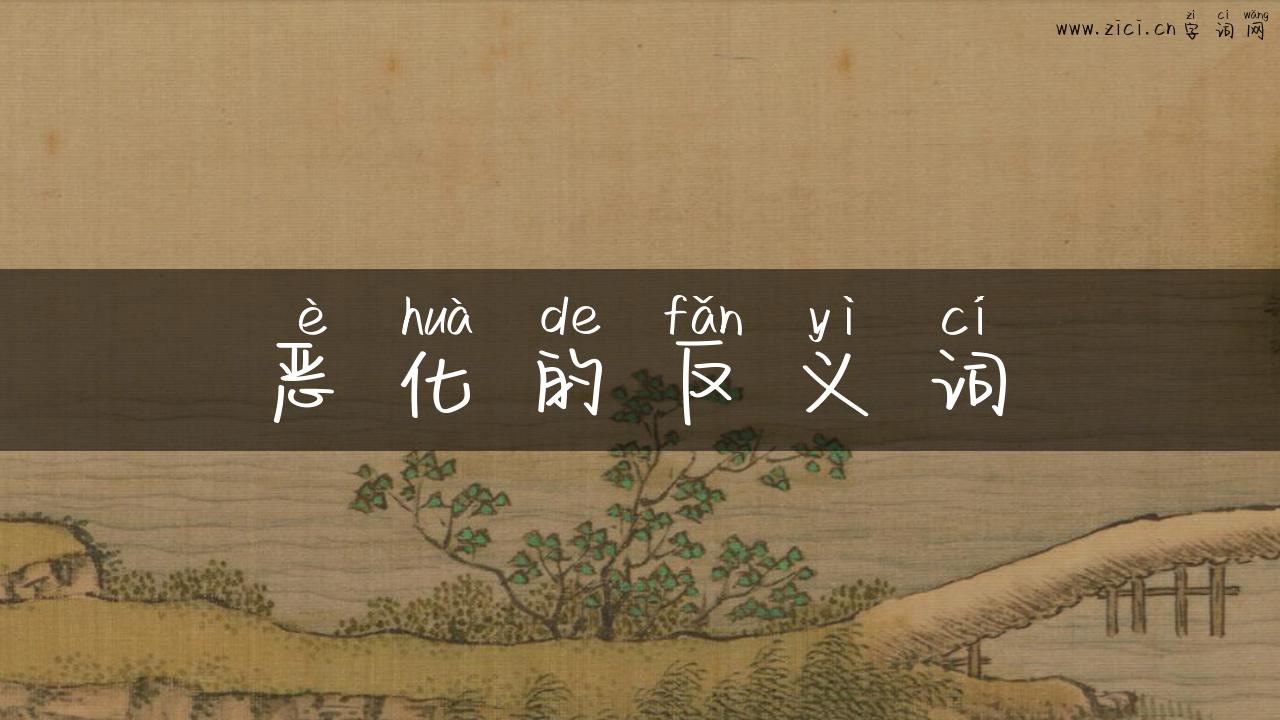 zì cí wǎng
www.zici.cn 字词网
è huà de fǎn yì cí
恶化的反义词